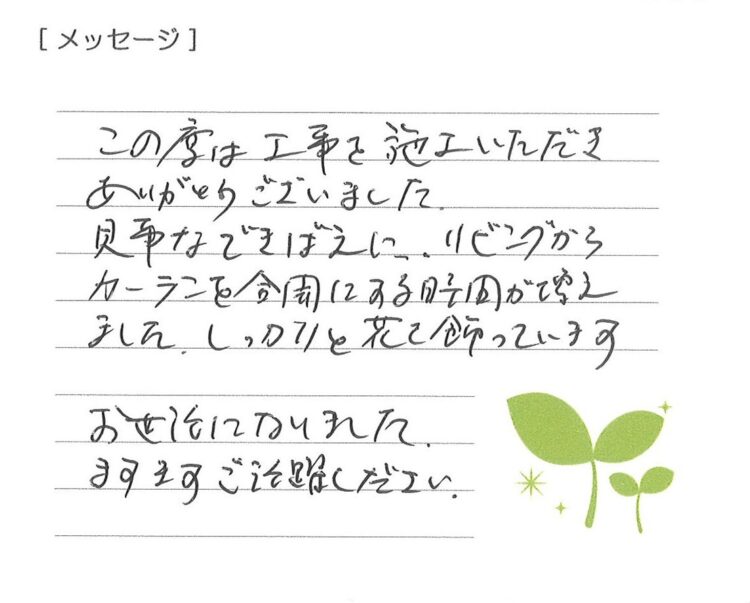 [メッセージ]
この度は工事を施工いただき
ありがとうございました.
見事なできばえに、、リビングから
カーテンを全開にする時間が増え
ました. しっかりと花を飾っています
お世話になりました.
ますますご活躍ください.